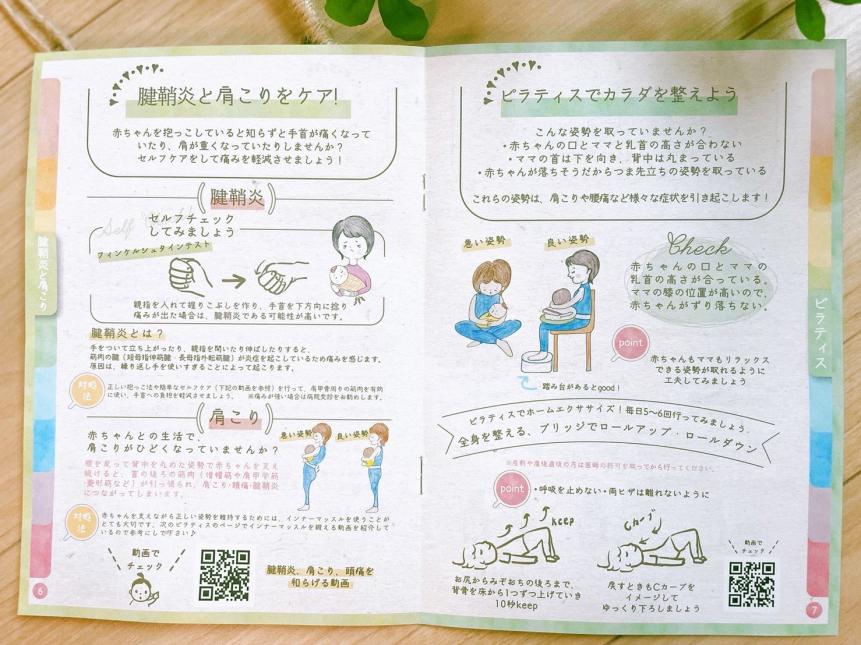 腱鞘炎と肩こりをケア!
赤ちゃんを抱っこしていると知らずと手首が痛くなって
いたり、肩が重くなっていたりしませんか?
セルフケアをして痛みを軽減させましょう!
腱鞘炎
Self
セルフチェック
してみましょう
フィンケルシュタインテスト
親指を入れて握りこぶしを作り、手首を下方向に捻り
痛みが出た場合は、腱鞘炎である可能性が高いです。
腱鞘炎とは?
手をついて立ち上がったり、親指を開いたり伸ばしたりすると、
筋肉の腱(短母指伸筋腱・長母指外転筋腱)が炎症を起こしているため痛みを感じます。
原因は、繰り返し手を使いすぎることによって起こります。
対処法
正しい抱っこ法や簡単なセルフケア(下記の動画を参照)を行って、肩甲骨周りの筋肉を有効
に使い、手首への負担を軽減させましょう。 ※痛みが強い場合は病院受診をお勧めします。
肩こり
赤ちゃんとの生活で、
肩こりがひどくなっていませんか?
腰を反って背中を丸めた姿勢で赤ちゃんを支え
続けると、首の後ろの筋肉(僧帽筋や肩甲挙筋
・菱形筋など)が引っ張られ、肩こり・頭痛・腱鞘炎
につながってしまいます。
悪い姿勢
良い姿勢
対処法
赤ちゃんを支えながら正しい姿勢を維持するためには、インナーマッスルを使うことが
とても大切です。次のピラティスのページでインナーマッスルを鍛える動画を紹介して
いるので参考にして下さい♪
動画で
チェック
腱鞘炎、肩こり、頭痛を
和らげる動画
腱鞘炎と肩こり
6
ピラティスでカラダを整えよう
こんな姿勢を取っていませんか?
・赤ちゃんの口とママと乳首の高さが合わない
・ママの首は下を向き、背中は丸まっている
・赤ちゃんが落ちそうだからつま先立ちの姿勢を取っている
これらの姿勢は、肩こりや腰痛など様々な症状を引き起こします!
悪い姿勢
良い姿勢
Check
赤ちゃんの口とママの
乳首の高さが合っている。
ママの膝の位置が高いので、
赤ちゃんがずり落ちない。
point
赤ちゃんもママもリラックス
できる姿勢が取れるように
工夫してみましょう
踏み台があるとgood!
ピラティスでホームエクササイズ!毎日5〜6回行ってみましょう。
全身を整える、ブリッジでロールアップ・ロールダウン
※産前や産後直後の方は医師の許可を取ってから行ってください。
point
・呼吸を止めない・両ヒザは離れないように
keep
Cカーブ
お尻からみぞおちの後ろまで、
背骨を床から1つずつ上げていき
10秒keep
戻すときもCカーブを
イメージして
ゆっくり下ろしましょう
動画で
チェック
ピラティス
7